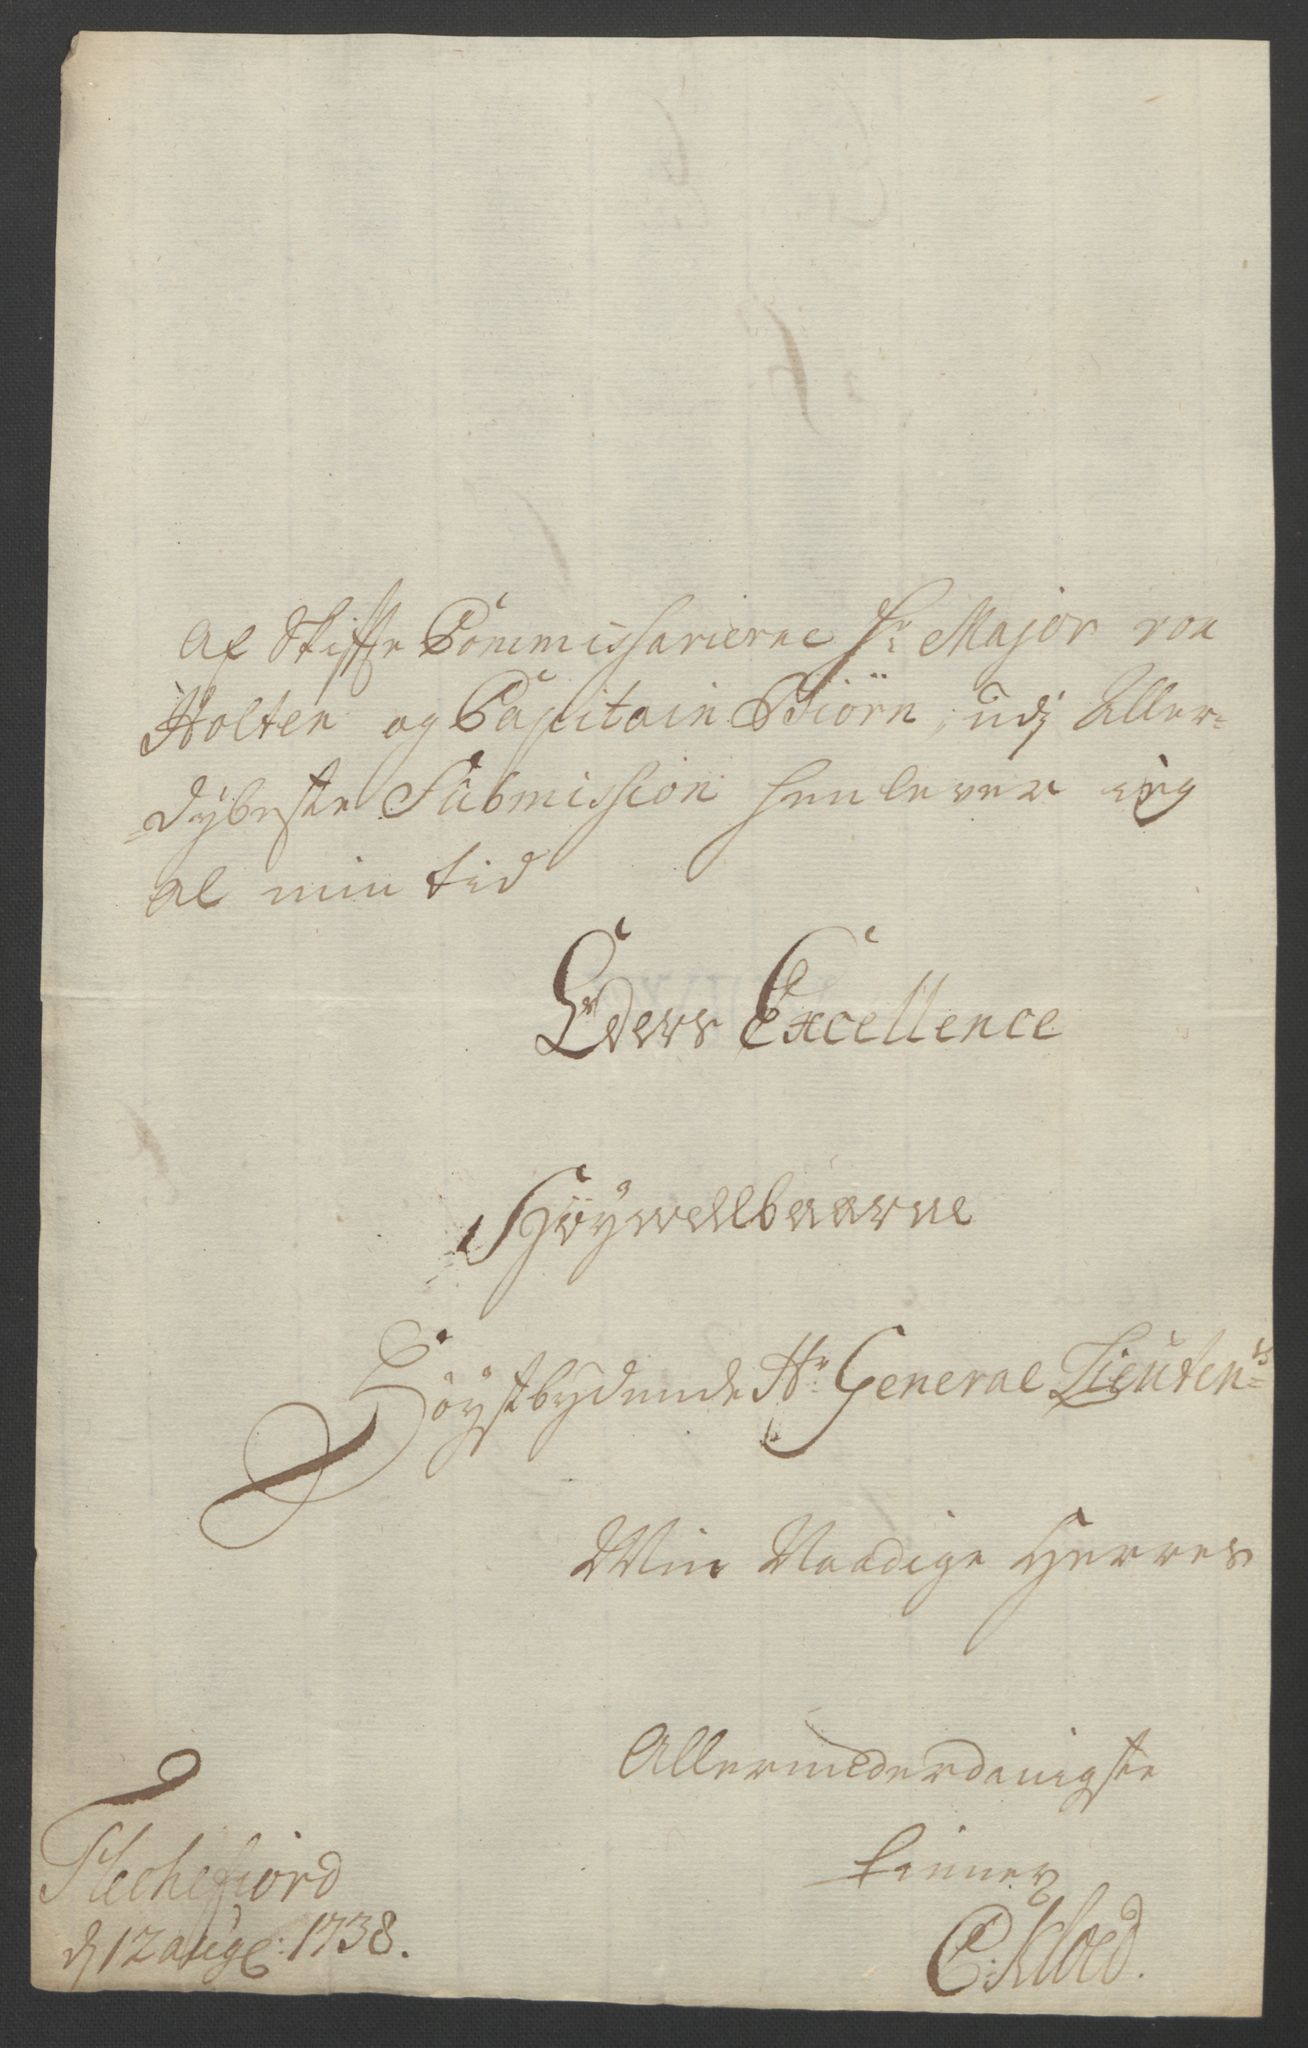 Af Skifte Commissarierne Hr Major von
Holten og Capitain Biörn, udj Aller-
-dybeste Submission henlever ieg
al min tid
Eders Excellence
Høyvelbaarne
Høystbydende Hr General Lieuten:ts
Min Naadige Herres
Allerunderdanigste
tienner
C: Kloed.
Flechefiord
d 12 aug: 1738.